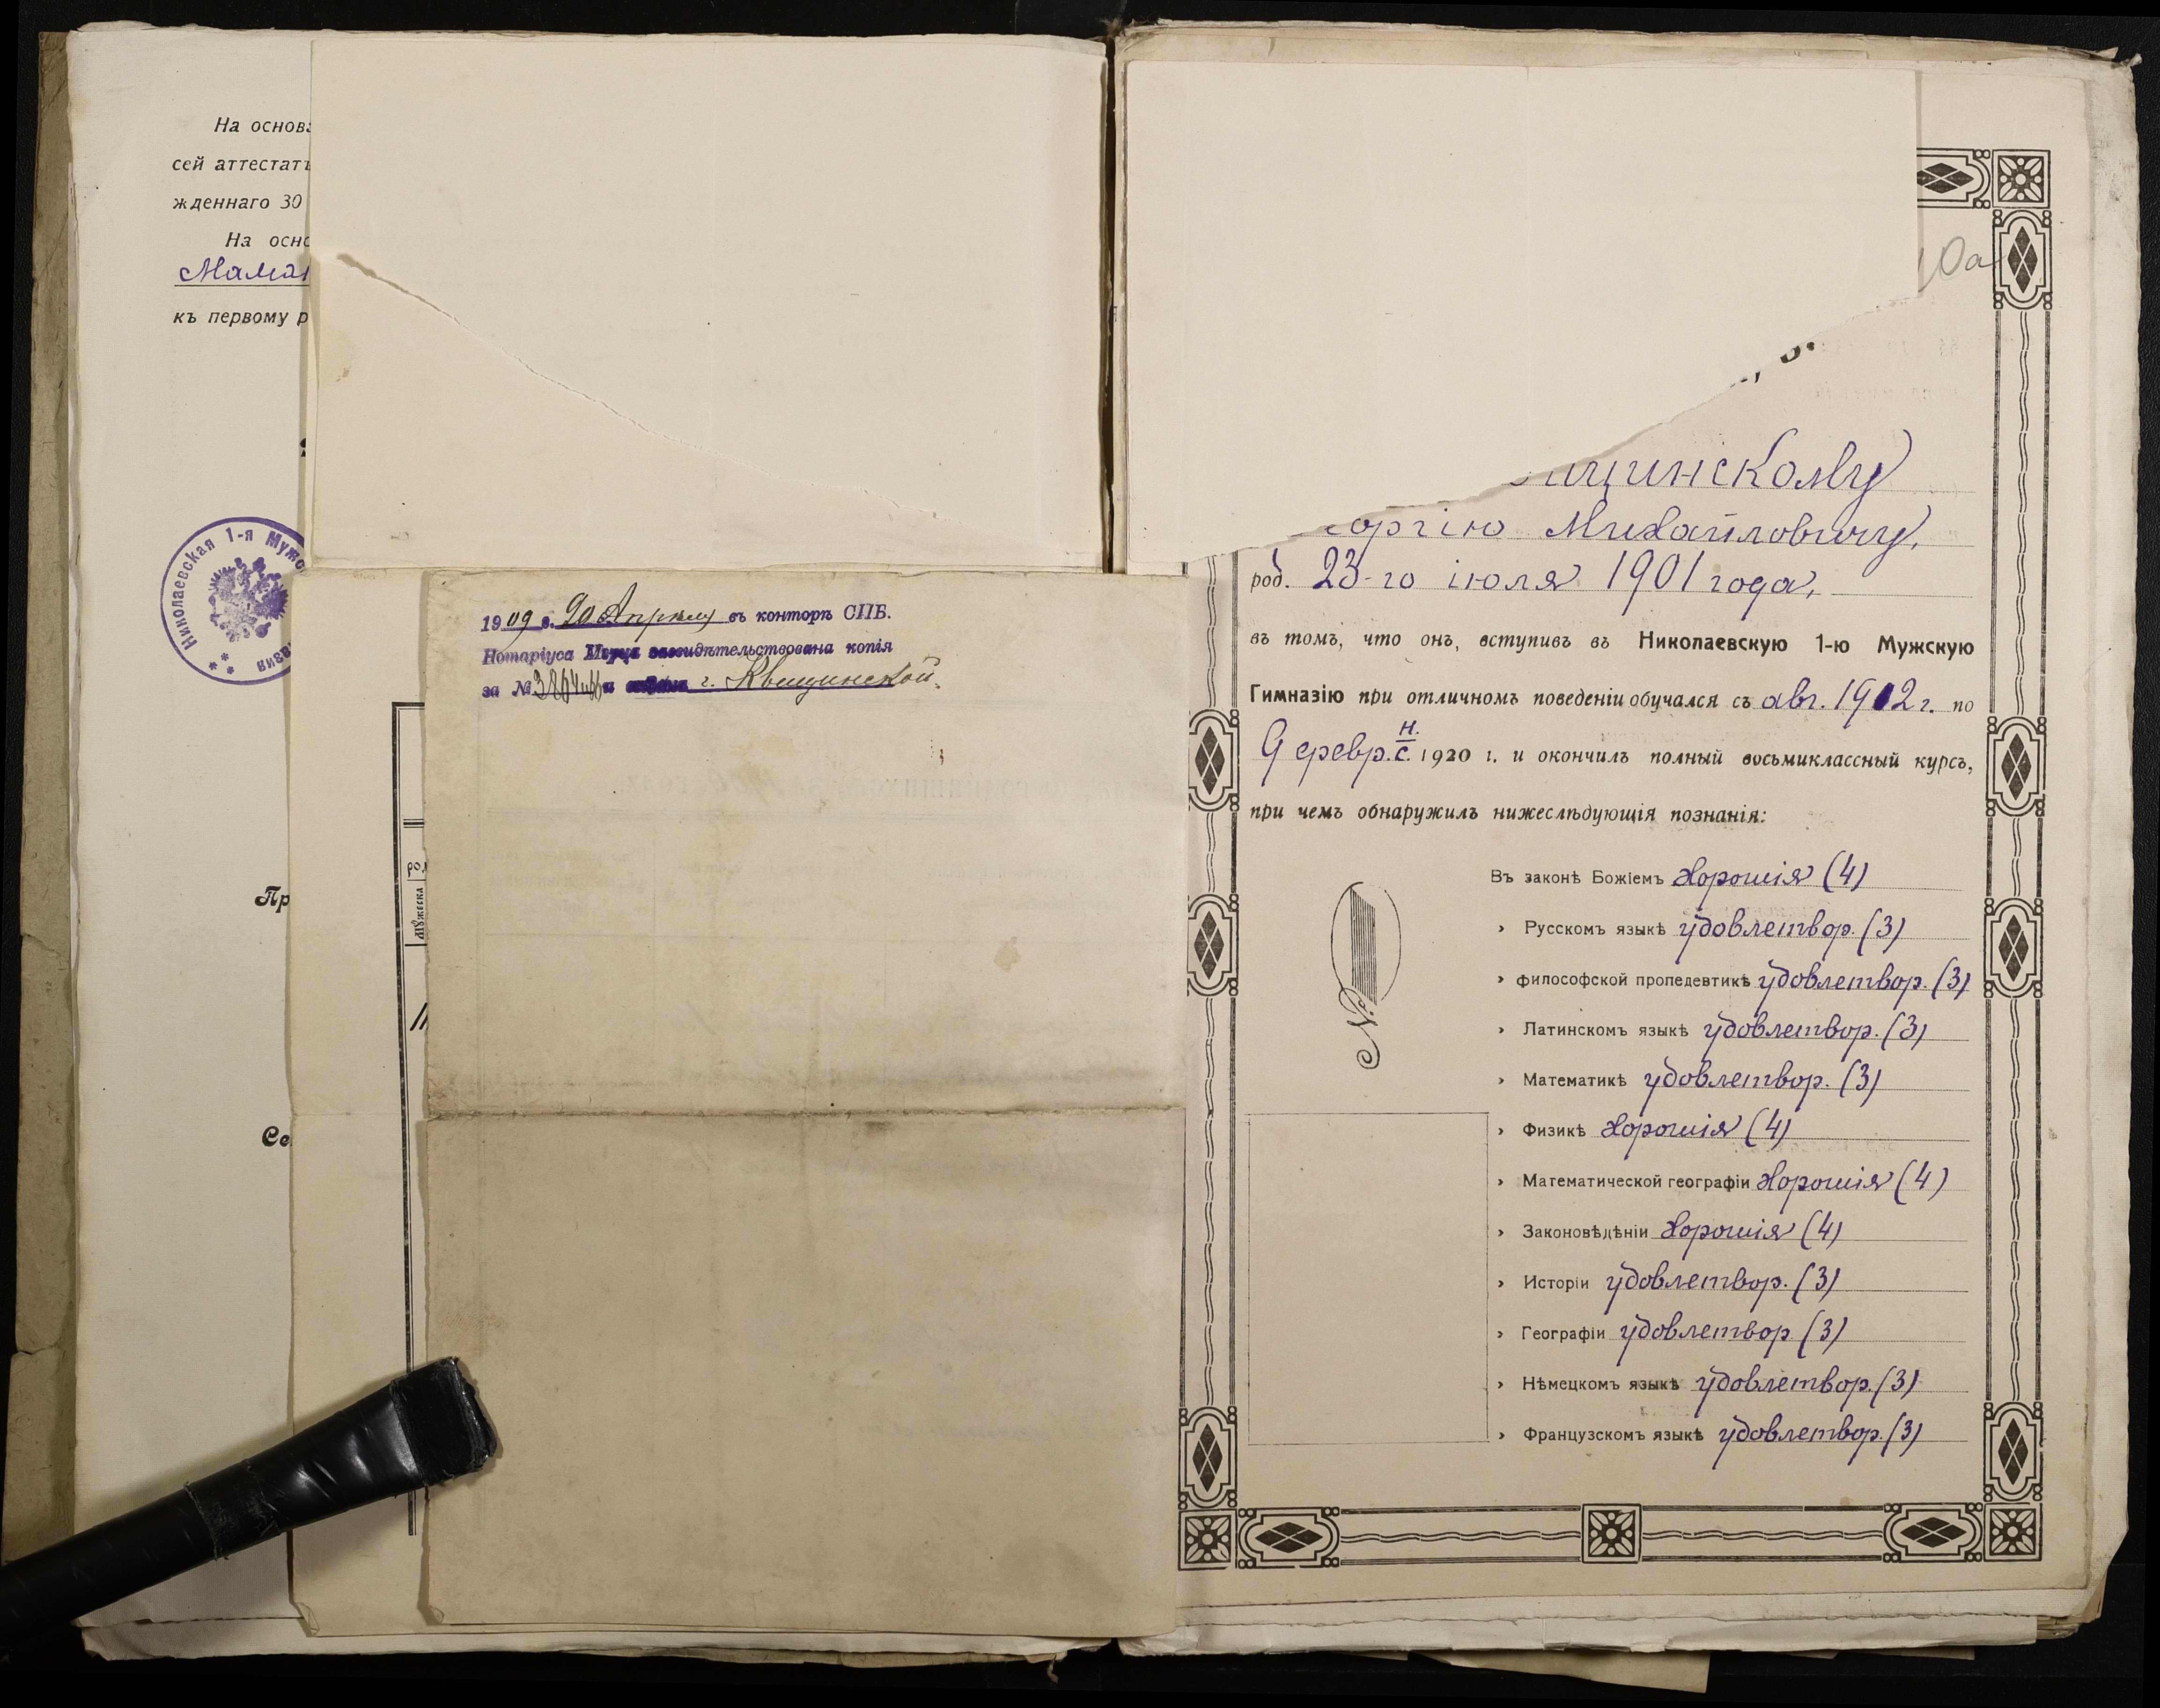 На основ
сей аттестатъ
жденнаго 30
На осно
Маман
къ первому р
Николаевская 1-я Мужс
Пр
Се
1909 г. 20 Апрѣля въ конторѣ СПБ.
Нотаріуса засвидѣтельствована копія
за № г. Квещинской.
10а
щинскому
еоргію Михайловичу,
род. 23-го іюля 1901 года,
въ томъ, что онъ, вступивъ въ Николаевскую 1-ю Мужскую
Гимназію при отличномъ поведеніи обучался съ авг. 1912 г. по
9 февр. н. с. 1920 г. и окончилъ полный восьмиклассный курсъ,
при чемъ обнаружилъ нижеслѣдующія познанія:
№
Въ законѣ Божіемъ хорошія (4)
› Русскомъ языкѣ удовлетвор. (3)
› философской пропедевтикѣ удовлетвор. (3)
› Латинскомъ языкѣ удовлетвор. (3)
› Математикѣ удовлетвор. (3)
› Физикѣ хорошія (4)
› Математической географіи хорошія (4)
› Законовѣдѣніи хорошія (4)
› Исторіи удовлетвор. (3)
› Географіи удовлетвор (3)
› Нѣмецкомъ языкѣ удовлетвор. (3)
› Французскомъ языкѣ удовлетвор. (3)